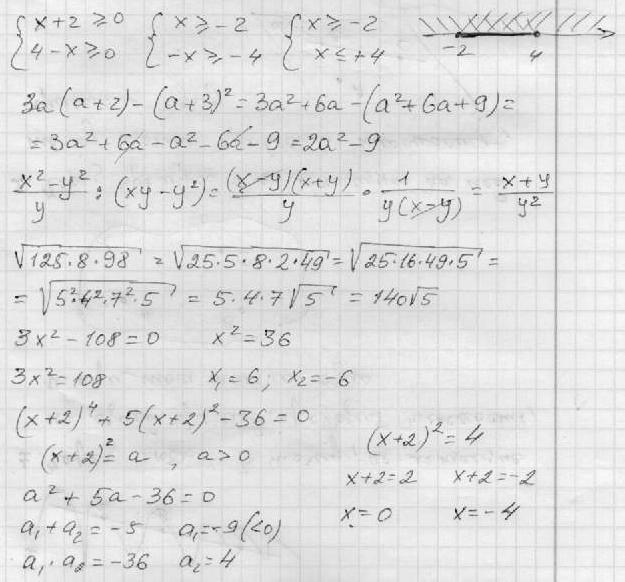 { x+2 ≥ 0   { x ≥ -2   { x ≥ -2   -2   4
{ 4-x ≥ 0   { -x ≥ -4   { x ≤ +4
3a(a+2)-(a+3)² = 3a²+6a-(a²+6a+9) =
= 3a²+6a-a²-6a-9 = 2a²-9
(x²-y²)/y : (xy-y²) = (x-y)(x+y)/y · 1/(y(x-y)) = (x+y)/y²
√(125·8·98) = √(25·5·8·2·49) = √(25·16·49·5) =
= √(5²·4²·7²·5) = 5·4·7√5 = 140√5
3x²-108=0   x²=36
3x²=108   x₁=6; x₂=-6
(x+2)⁴+5(x+2)²-36=0
(x+2)²=a, a>0
a²+5a-36=0
a₁+a₂=-5   a₁=-9(<0)
a₁·a₂=-36   a₂=4
(x+2)²=4
x+2=2   x+2=-2
x=0   x=-4